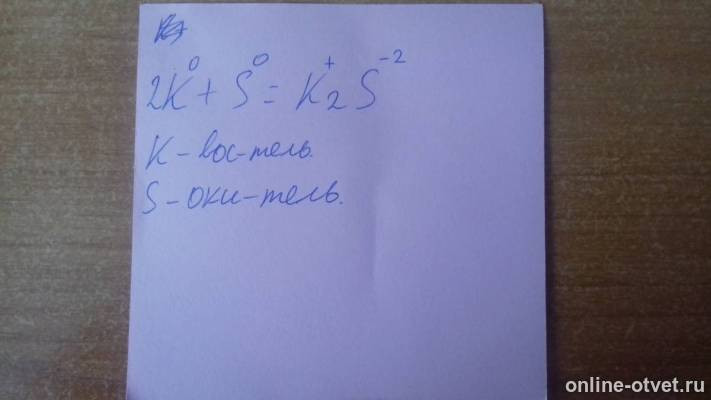 2K⁰ + S⁰ = K₂⁺S⁻²
K – вос-тель.
S – оки-тель.
online-otvet.ru